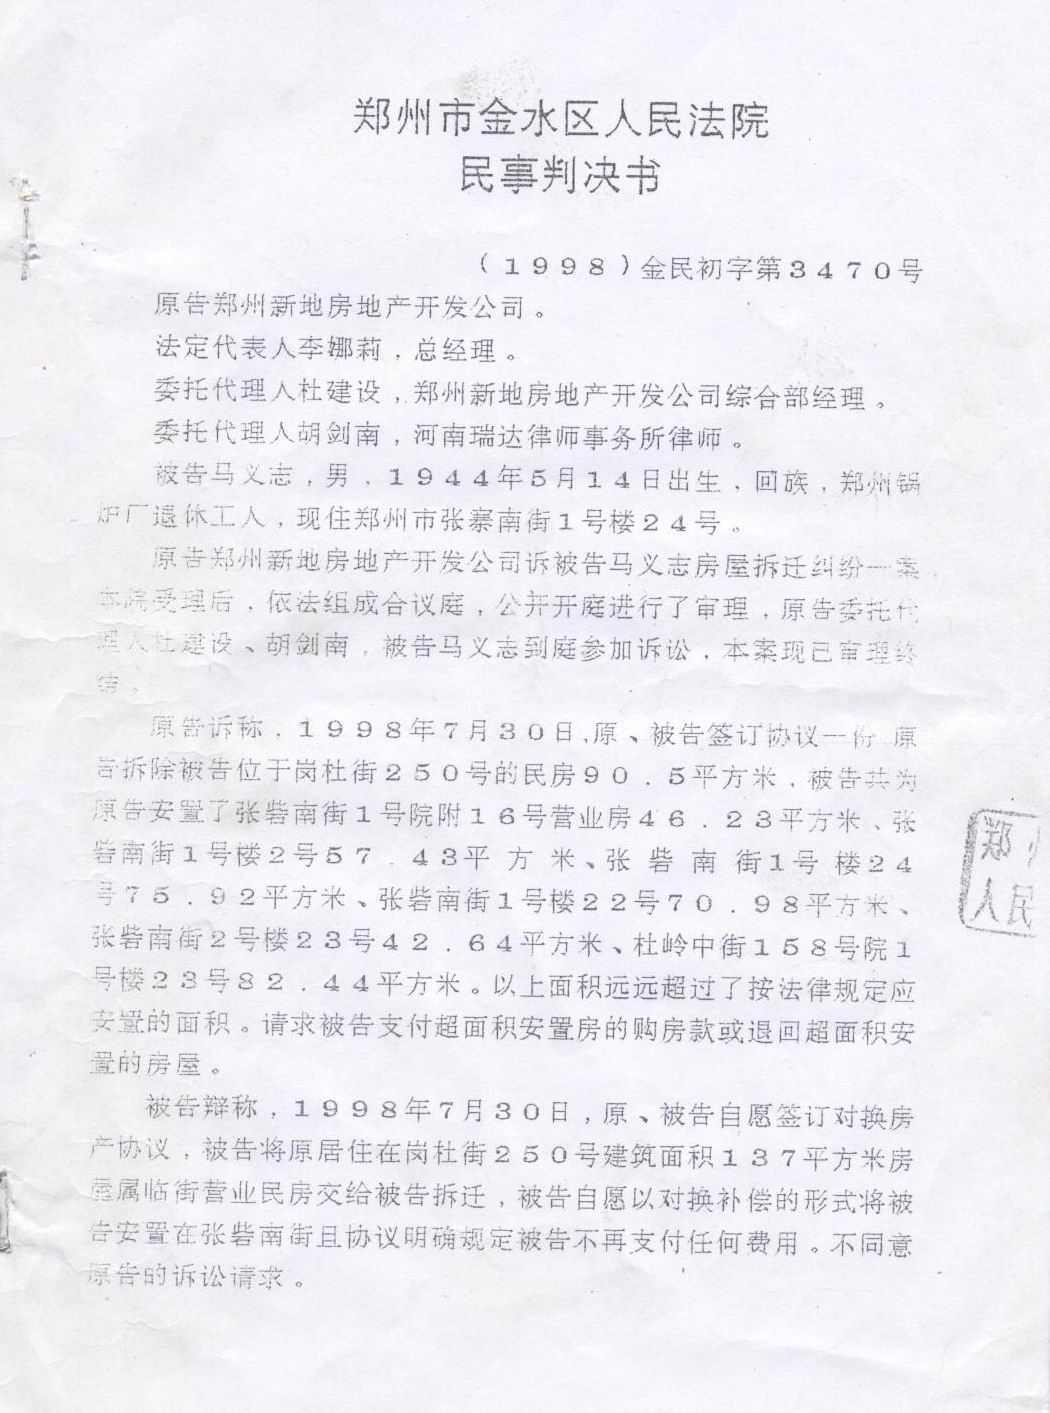 郑州市金水区人民法院
民事判决书
（1998）金民初字第3470号
原告郑州新地房地产开发公司。
法定代表人李娜莉，总经理。
委托代理人杜建设，郑州新地房地产开发公司综合部经理。
委托代理人胡剑南，河南瑞达律师事务所律师。
被告马义志，男，1944年5月14日出生，回族，郑州锅
炉厂退休工人，现住郑州市张寨南街1号楼24号。
原告郑州新地房地产开发公司诉被告马义志房屋拆迁纠纷一案
本院受理后，依法组成合议庭，公开开庭进行了审理，原告委托代
理人杜建设、胡剑南，被告马义志到庭参加诉讼，本案现已审理终
结。
原告诉称，1998年7月30日，原、被告签订协议一份，原
告拆除被告位于岗杜街250号的民房90．5平方米，被告共为
原告安置了张砦南街1号院附16号营业房46．23平方米、张
砦南街1号楼2号57．43平方米、张砦南街1号楼24
号75．92平方米、张砦南街1号楼22号70．98平方米、
张砦南街2号楼23号42．64平方米、杜岭中街158号院1
号楼23号82．44平方米。以上面积远远超过了按法律规定应
安置的面积。请求被告支付超面积安置房的购房款或退回超面积安
置的房屋。
被告辩称，1998年7月30日，原、被告自愿签订对换房
产协议，被告将原居住在岗杜街250号建筑面积137平方米房
屋属临街营业民房交给被告拆迁，被告自愿以对换补偿的形式将被
告安置在张砦南街且协议明确规定被告不再支付任何费用。不同意
原告的诉讼请求。
郑
人民